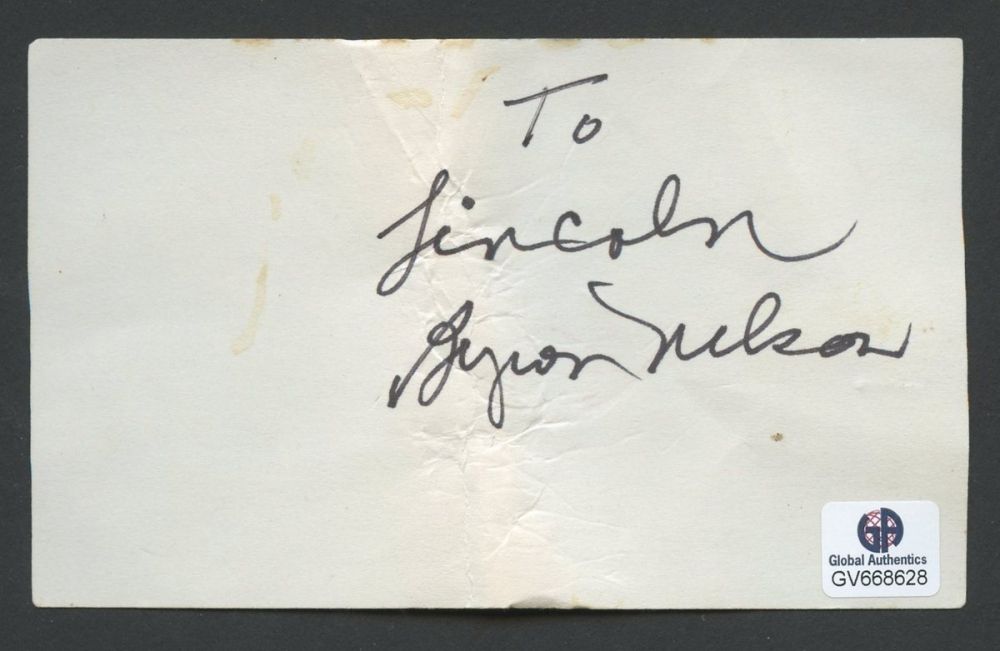 To
Lincoln
Byron Nelson
GA
Global Authentics
GV668628